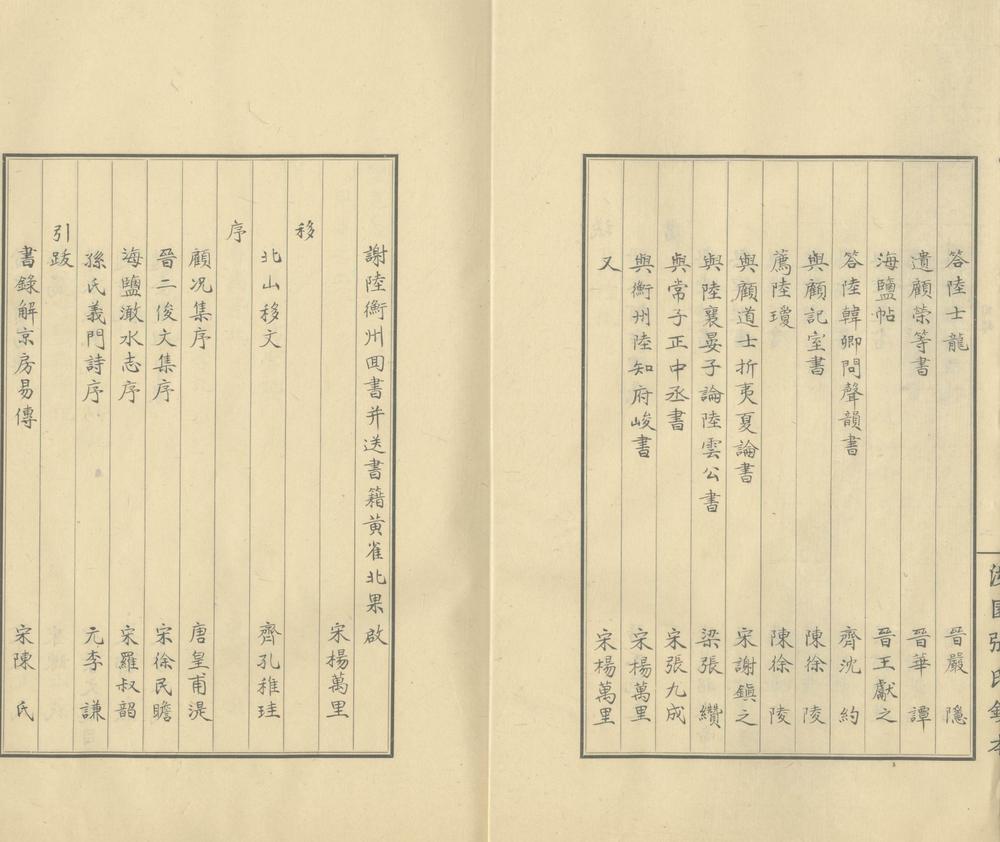 答陸士龍 晉嚴隱
遺顧榮等書 晉華譚
海鹽帖 晉王獻之
答陸韓卿問聲韻書 齊沈約
與顧記室書 陳徐陵
薦陸瓊 陳徐陵
與顧道士折夷夏論書 宋謝鎮之
與陸襄晏子論陸雲公書 梁張纘
與常子正中丞書 宋張九成
與衡州陸知府峻書 宋楊萬里
又 宋楊萬里
謝陸衡州回書并送書籍黃雀北果啟
宋楊萬里
移
北山移文 齊孔稚珪
序
顧況集序 唐皇甫湜
晉二俊文集序 宋徐民瞻
海鹽澉水志序 宋羅叔韶
孫氏義門詩序 元李謙
引跋
書錄解京房易傳 宋陳氏